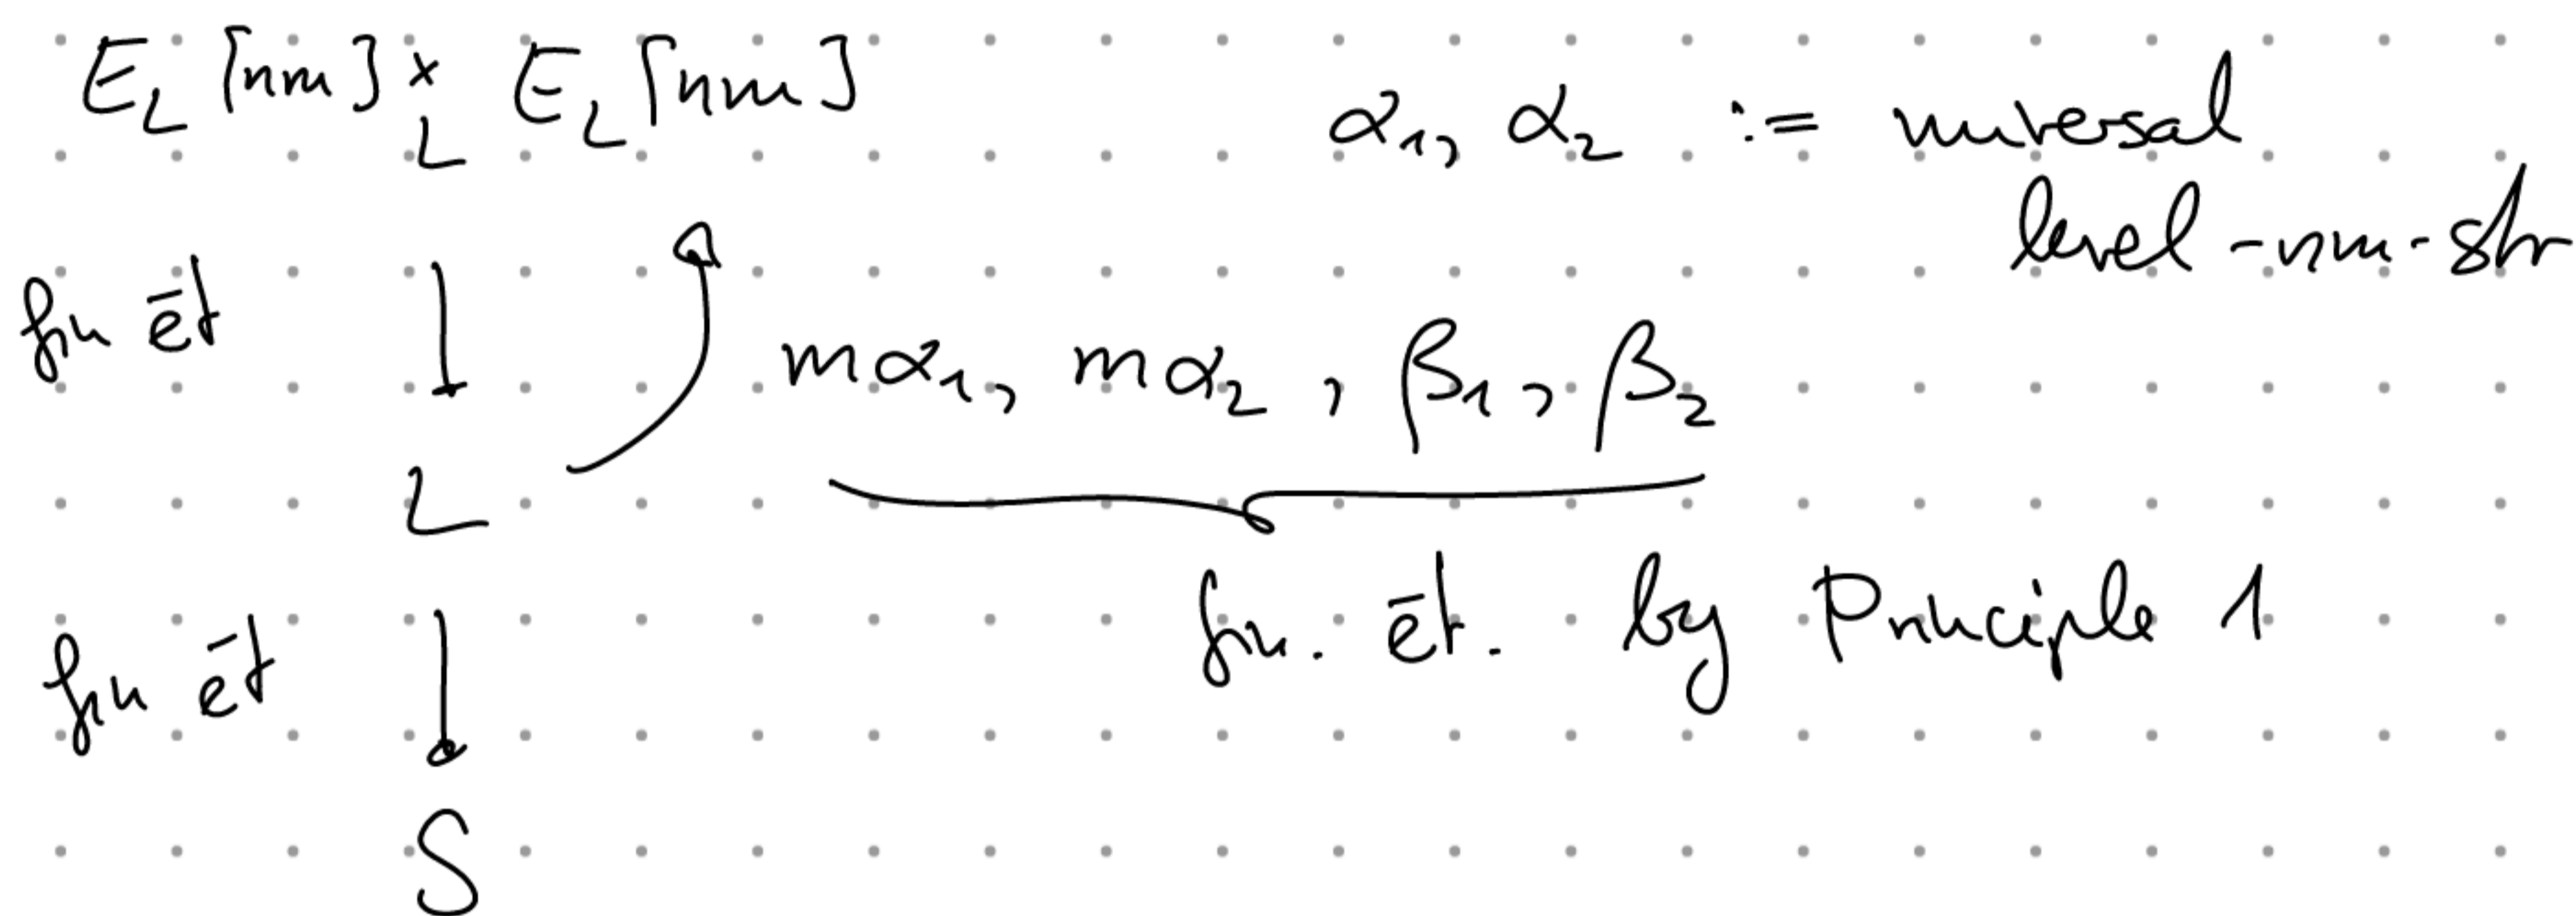 E_L [nm] ×_L E_L [nm]
α_1, α_2 := universal
level-nm-str
fin ét
mα_1, mα_2, β_1, β_2
L
fin. ét. by Principle 1
fin ét
S